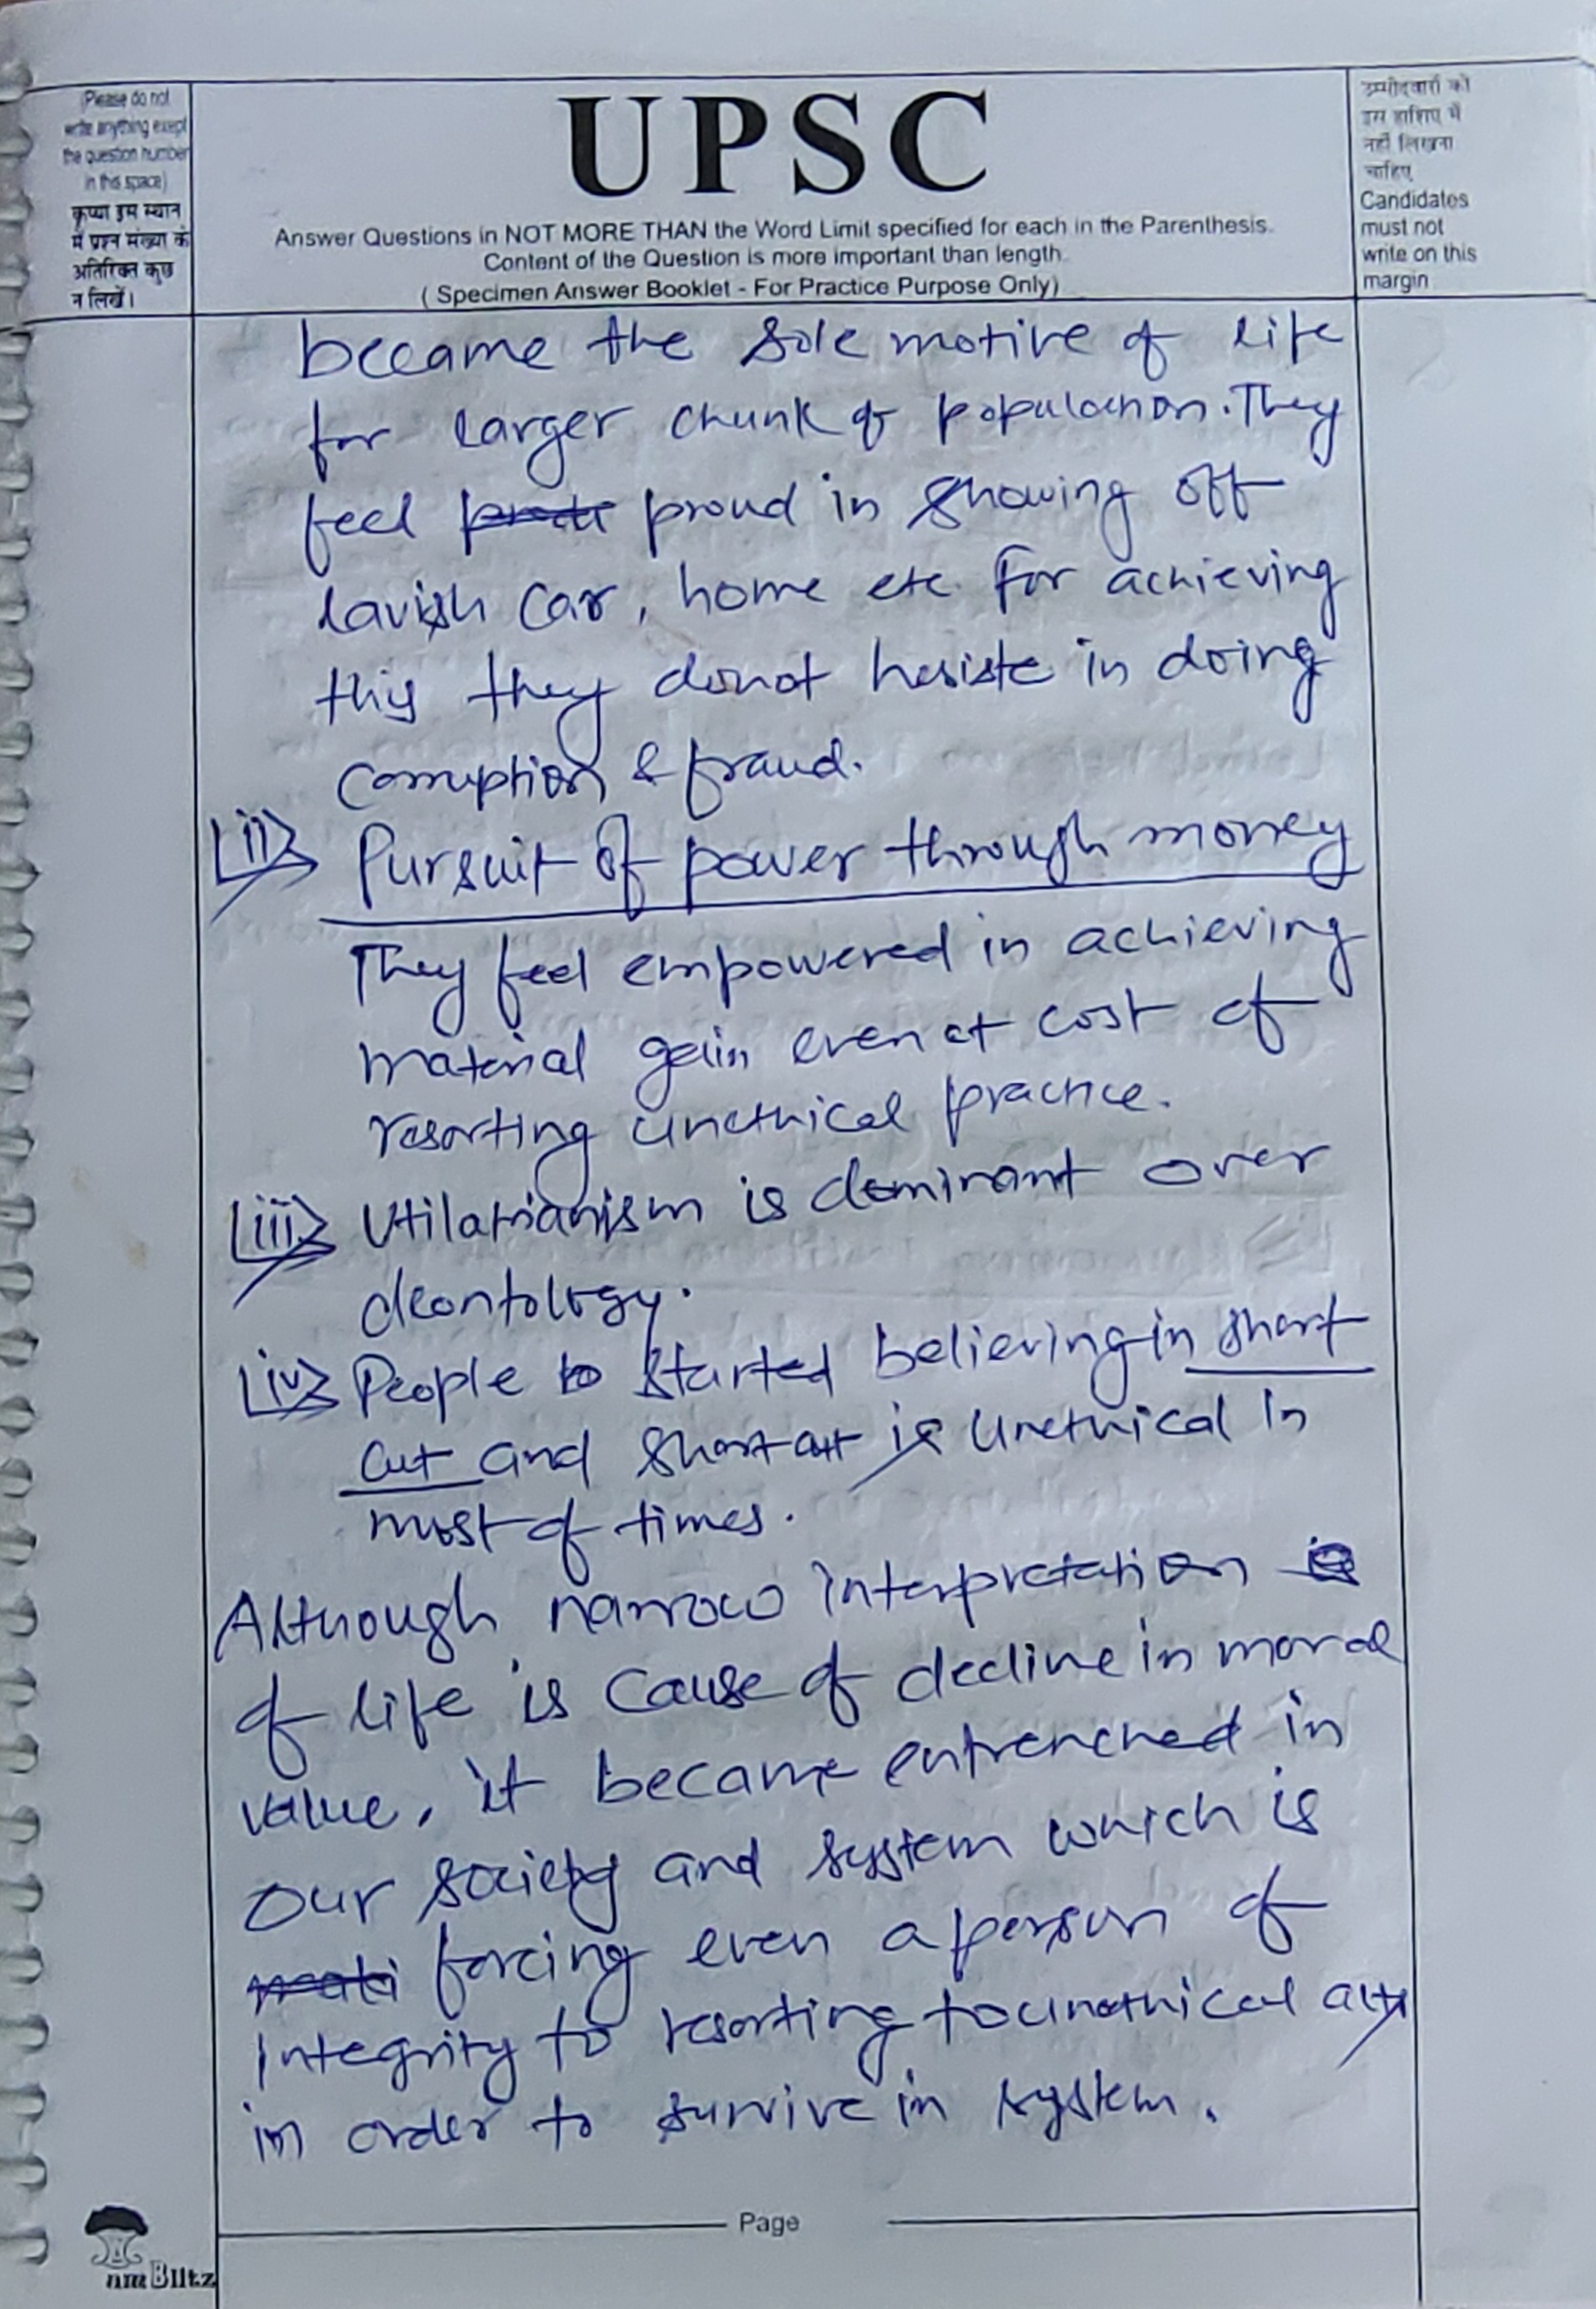 (Please do not
write anything except
the question number
in this space)
कृप्या इस स्थान
में प्रश्न संख्या के
अतिरिक्त कुछ
न लिखें।
UPSC
Answer Questions in NOT MORE THAN the Word Limit specified for each in the Parenthesis.
Content of the Question is more important than length.
( Specimen Answer Booklet - For Practice Purpose Only)
उम्मीदवारों को
इस हाशिए में
नहीं लिखना
चाहिए
Candidates
must not
write on this
margin
became the sole motive of life
for larger chunk of population. They
feel proud in showing off
lavish car, home etc. for achieving
this they donot hesiste in doing
corruption & fraud.
(ii) Pursuit of power through money
They feel empowered in achieving
material gain even at cost of
resorting unethical practice.
(iii) Utilatrianism is dominant over
deontology.
(iv) People to started believing in short
cut and short cut is unethical in
most of times.
Although narrow interpretation
of life is cause of decline in moral
value, it became entrenched in
our society and system which is
forcing even a person of
integrity to resorting to unethical acts
in order to survive in system.
Page
Blitz